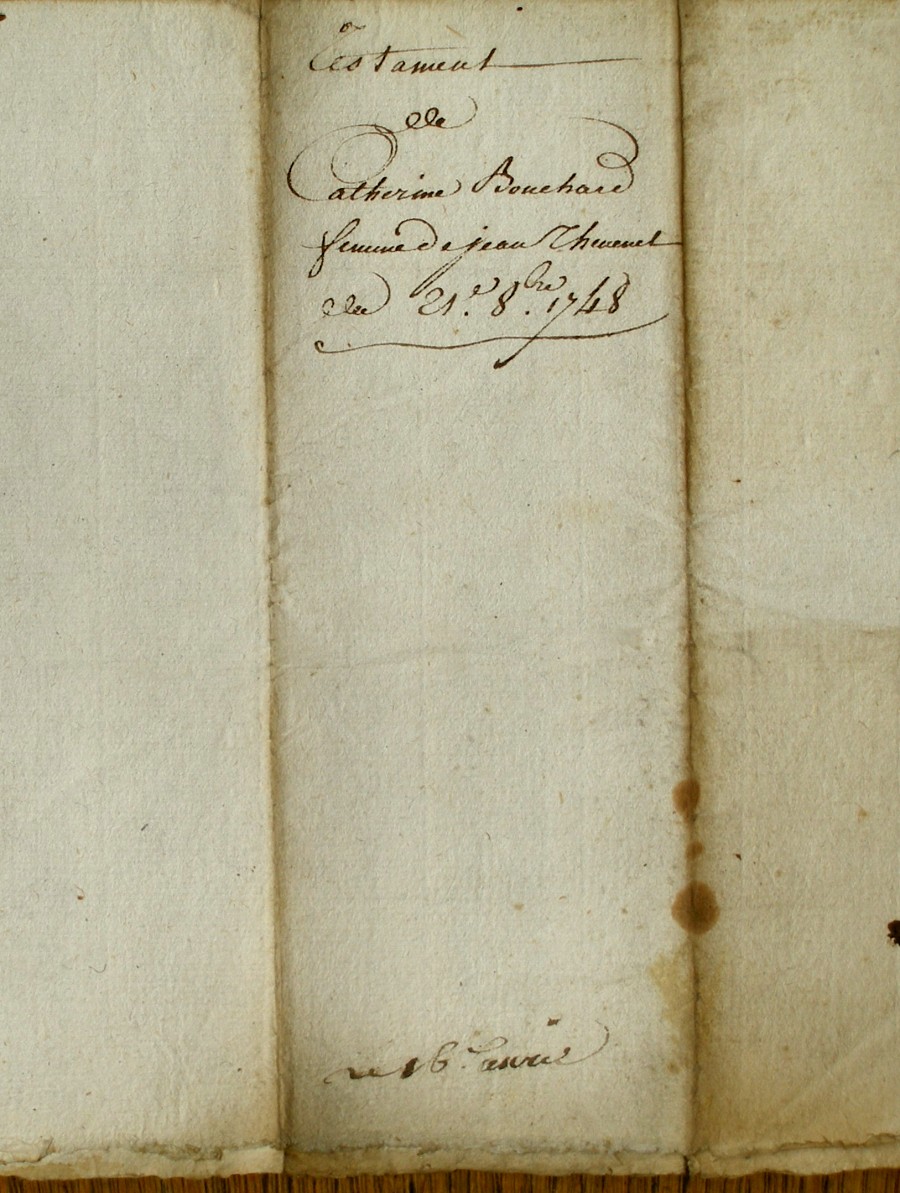 Testament
de
Catherine Bouchard
femme de jean Thevenet
du 21.e 8.bre 1748